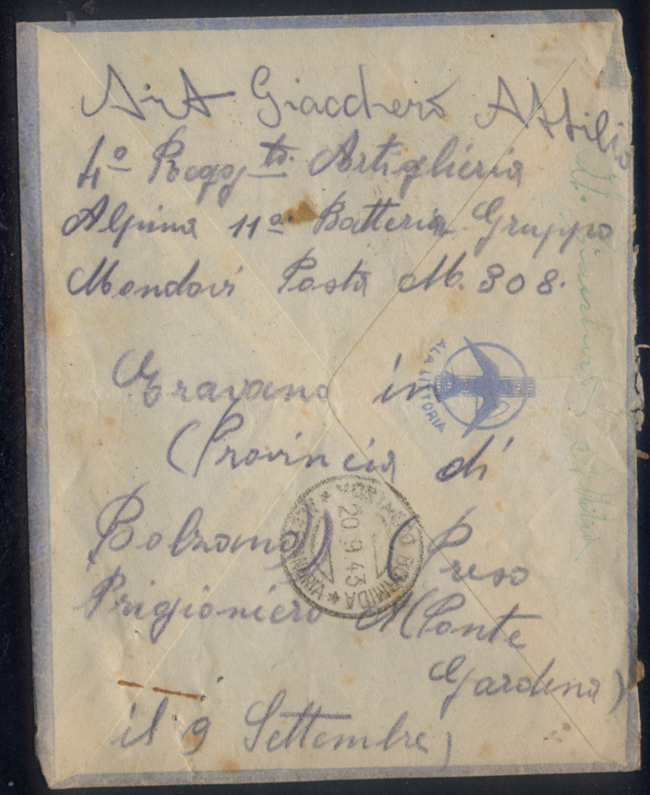 Art Giacchero Attilio
4º Regg.to. Artiglieria
Alpina 11ª Batteria Gruppo
Mondovì Posta M. 308.
Eravano in
(Provincia di
Bolzano) (Preso
Prigioniero A (Ponte
Gardena)
il 9 Settembre)
ALA LITTORIA
20.9.43
BORMIDA